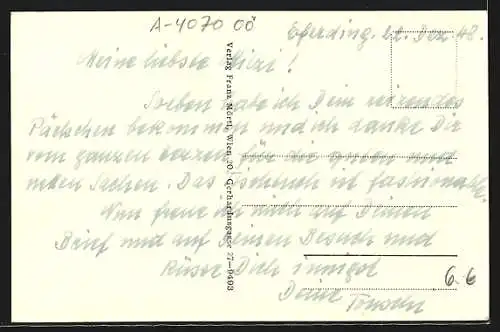 A-4070 OÖ
Eferding, 22. Dez. 48.
Meine liebste Mizi!
Soeben habe ich Dein reizendes
Päckchen bekommen und ich danke Dir
vom ganzen Herzen für die guten und
netten Sachen. Das ist fashionable.
Nun freue ich mich auf Deinen
Brief und auf Deinen Besuch und
Küsse Dich innigst
Deine
6.6
Verlag Franz Mörtl, Wien 20, Gerhardusgasse 27-9403